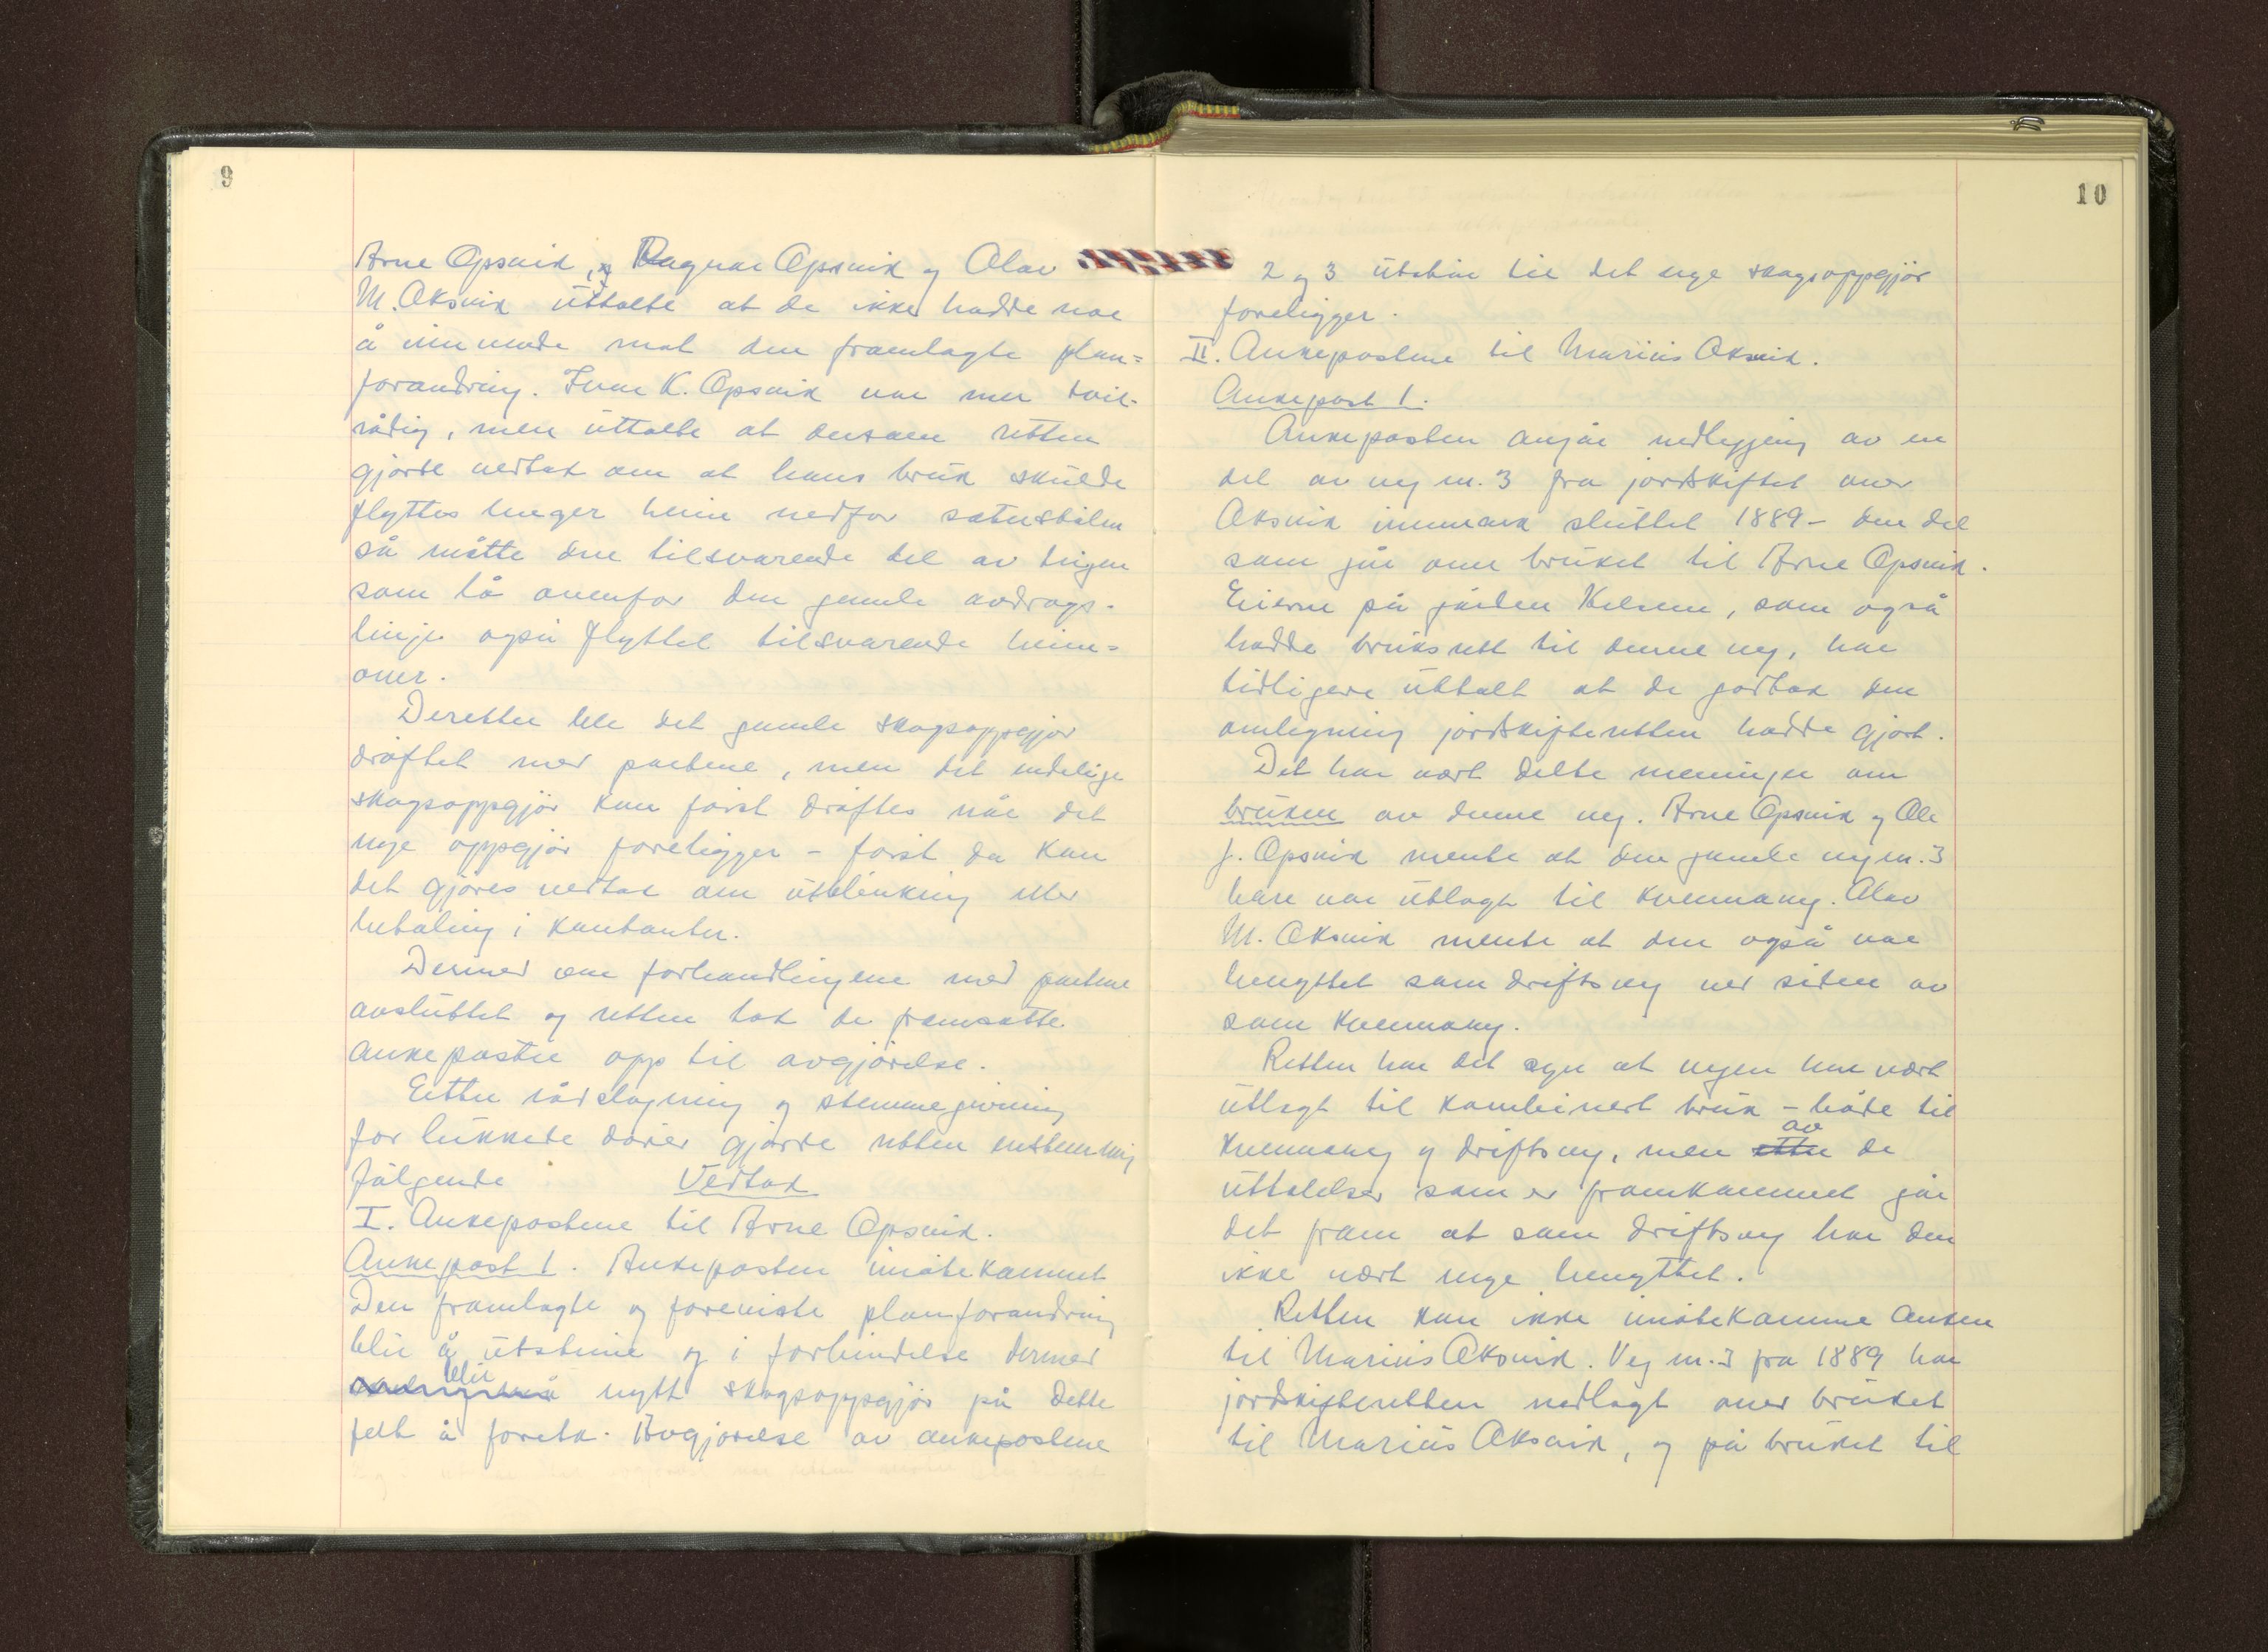 9
Arne Opsvik, og Ragnar Opsvik og Olav
M. Aksvik uttalte at de ikke hadde noe
å innvende mot den framlagte plan=
forandring. Ivar K. Opsvik var mer tvil-
rådig, men uttalte at dersom retten
gjorde vedtak om at hans bruk skulde
flyttes lenger heim nedfor
så måtte den tilsvarende del av teigen
som lå ovenfor den gamle avdrags-
linje også flyttet tilsvarende heim=
over.
Deretter ble det gamle skogsoppgjør
drøftet med partene, men det endelige
skogsoppgjør kan først drøftes når det
nye oppgjør foreligger - først da kan
det gjøres vedtak om utblinking eller
betaling i kontanter.
Dermed var forhandlingene med partene
avsluttet og retten tok de framsatte
ankeposter opp til avgjørelse.
Etter rådslagning og stemmegivning
for lukkede dører gjorde retten enstemmig
følgende Vedtak
I. Ankepostene til Arne Opsvik.
Ankepost 1. Ankeposten imøtekommet
Den framlagte og foreviste planforandring
blir å utsteine og i forbindelse dermed
blir
nytt skogsoppgjør på dette
felt å foreta. Avgjørelse av ankepostene
10
2 og 3 utstår til det nye skogsoppgjør
foreligger.
II. Ankepostene til Marius Aksvik.
Ankepost 1.
Ankeposten angår nedlegging av en
del av veg nr. 3 fra jordskiftet over
Aksvik innmark sluttet 1889 - den del
som går over bruket til Arne Opsvik.
Eierne på gården Kelsene, som også
hadde bruksrett til denne veg, har
tidligere uttalt at de godtok den
omlegning jordskifteretten hadde gjort.
Det har vært delte meninger om
bruken av denne veg. Arne Opsvik og Ole
J. Opsvik mente at den gamle veg nr. 3
bare var utlagt til kvennaveg. Olav
M. Aksvik mente at den også var
benyttet som driftsveg ved siden av
som kvennaveg.
Retten har det syn at vegen har vært
utlagt til kombinert bruk - både til
av
kvennaveg og driftsveg, men etter de
uttalelser som er framkommet går
det fram at som driftsveg har den
ikke vært mye benyttet.
Retten kan ikke imøtekomme anken
til Marius Aksvik. Veg nr. 3 fra 1889 har
jordskifteretten nedlagt over bruket
til Marius Aksvik, og på bruket til